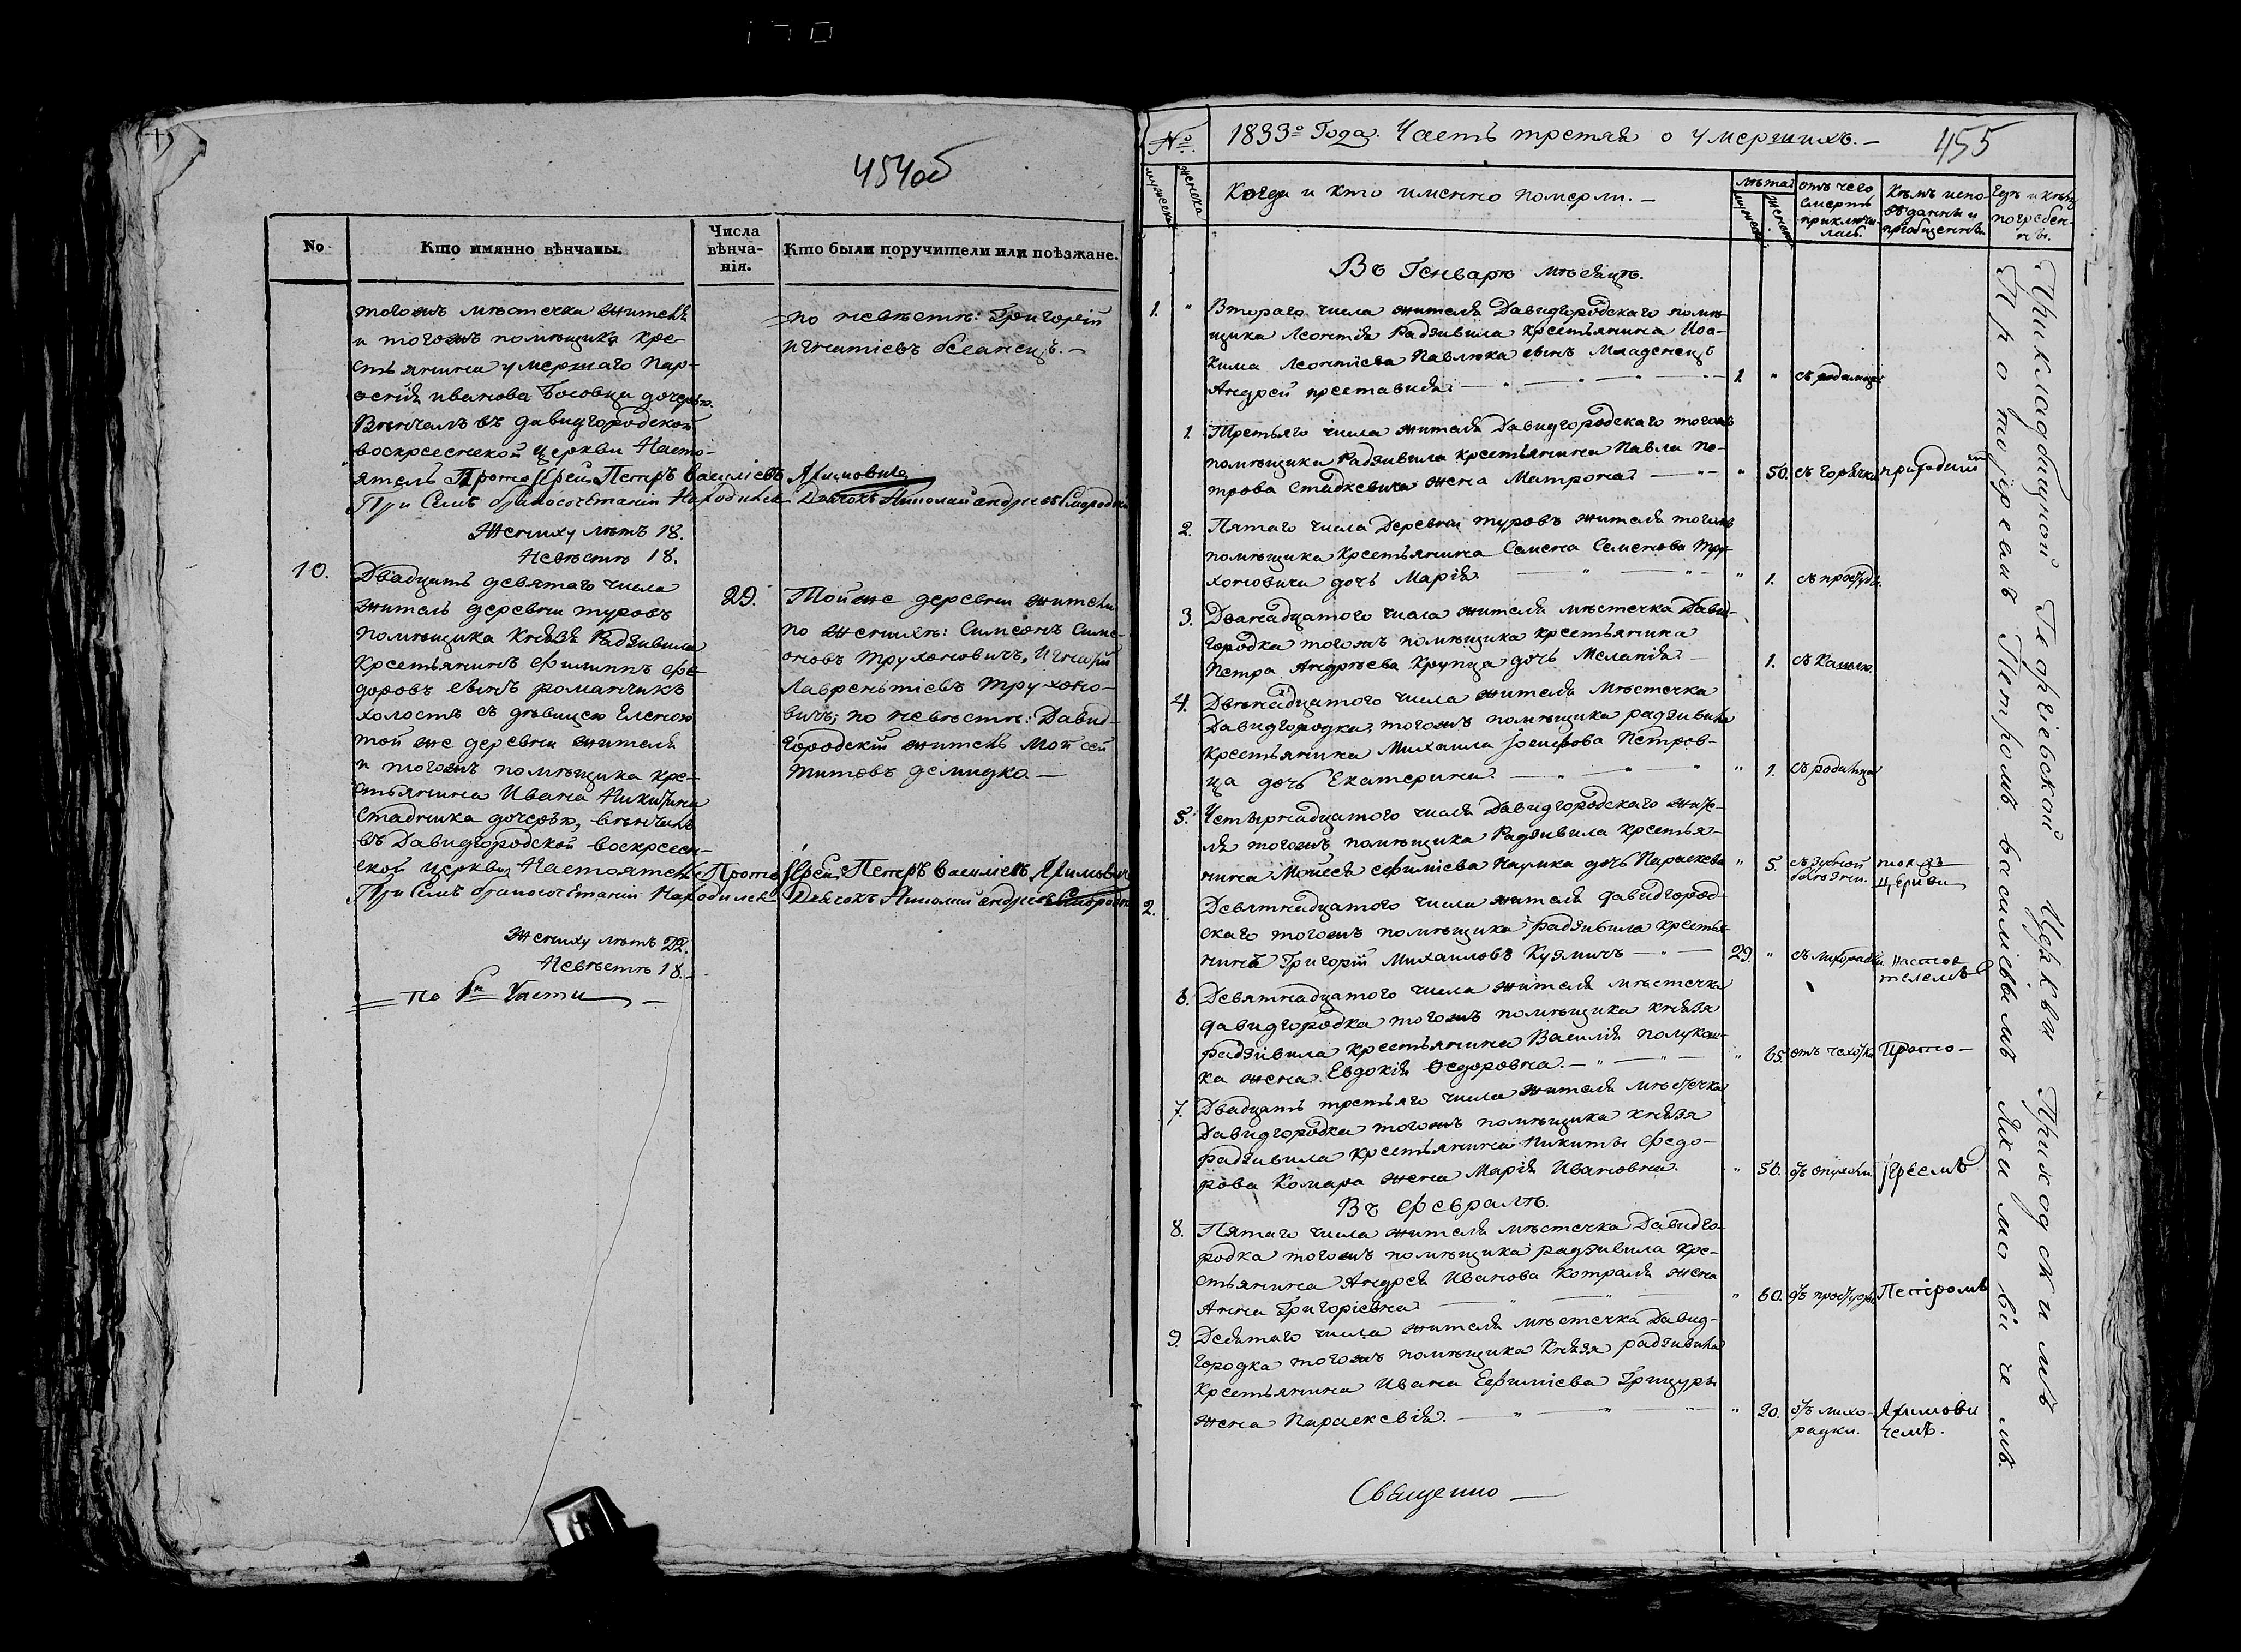 454об
No
Кто имянно вѣнчаны.
Числа вѣнча-
нія.
Кто были поручители или поѣзжане.
тогожъ мѣстечка жителя
и тогожъ помѣщика кре-
стьянина умершаго
иванова дочерью.
Вѣнчалъ въ давидгородской
воскресенской церкви Насто-
ятель Протоіерей Петръ Василіевъ Якимовичь
При Семъ бракосочетаніи Находился Дьячокъ Николай андреевъ
Жениху лѣтъ 18.
Невѣстѣ 18.
по невѣстѣ: Григорій
Игнатіевъ
10.
Двадцать девятаго числа
житель деревни туровъ
помѣщика Князя Радзивила
крестьянинъ Филиппъ Фе-
доровъ сынъ романчикъ
холостъ съ дѣвицею Еленою
той же деревни жителя
и тогожъ помѣщика кре-
стьянина Ивана Никитина
Стадника дочерью, вѣнчанъ
въ Давидгородской воскресен-
ской церкви Настоятель Протоіерей Петръ Василіевъ Якимовичь
При Семъ бракосочетаніи Находился Дьячокъ Николай андреевъ
29.
Тойже деревни жители
по женихѣ: Симеонъ Симе-
оновъ Трухоновичъ, Игнатій
Лаврентіевъ Трухоно-
вичъ; по невѣстѣ: Давид-
городскій житель Мойсей
Титовъ демидко —
Жениху лѣтъ 22.
Невѣстѣ 18.
по части
№
1833º Года. Часть третья о умершихъ. —
455
мужеска
женска
Когда и кто именно померли. —
лѣта
мужеск
женск
отъ чего
смерть
приключи
лась.
Кѣмъ испо-
вѣданны и
пріобщенны.
Гдѣ и кѣмъ
погребен-
ны.
Въ Генварѣ мѣсяцѣ.
1. " Втораго числа жителя Давидгородского помѣ-
щика Леонтія Радзивила крестьянина Иоа-
кима Леонтіева Павлюка сынъ Младенецъ
Андрей преставися. 1 " съ родимца
1. Третьяго числа жителя Давидгородскаго тогожъ
помѣщика Радзивила крестьянина Павла Пе-
трова Стадкевича жена Матрона " 50. съ горячки
2. Пятаго числа Деревни туровъ жителя тогожъ
помѣщика Крестьянина Семена Семенова Тру-
хоновича дочь Марія. " 1. съ простуды.
3. Дванадцатого числа жителя мѣстечка Давид-
городка тогожъ помѣщика крестьянина
Петра Андреева Крупца дочь Меланія. 1. съ Кашлю.
4. Двѣнадцатого числа жителя Мѣстечка
Давидгородка, тогожъ помѣщика радзивила
Крестьянина Михаила Іосифова Петров-
ца дочь Екатерина. " 1. съ родимца
5. Четырнадцатого числа Давидгородскаго жите-
ля тогожъ помѣщика Радзивила крестья-
нина Мойсея Ефиміева дочь Параскева " 5. съ зубной
болезни. тояжъ
церкви
2. Девятнадцатого числа жителя давидгород-
скаго тогожъ помѣщика радзивила крестья-
нинъ Григорій Михаиловъ Кузмичъ 29. " съ лихорадки настоя-
телемъ
6. Девятнадцатого числа жителя мѣстечка
давидгородка тогожъ помѣщика князя
радзивила крестьянина Василія
ка жена Евдокія Ѳедоровна. " 65. отъ чехотки Прото-
7. Двадцать третьяго числа жителя мѣстечка
Давидгородка тогожъ помѣщика князя
радзивила крестьянина Никиты Федо-
рова Комара жена Марія Ивановна. " 50. отъ опухоли іереемъ
Въ Февралѣ.
8. Пятаго числа жителя мѣстечка Давидго-
родка тогожъ помѣщика радзивила кре-
стьянина Андрея Иванова Котраля жена
Анна Григоріевна " 60. отъ простуды Петромъ
9. Десятаго числа жителя мѣстечка Давид-
городка тогожъ помѣщика Князя радзивила
Крестьянина Ивана Ефиміева Грицуры
жена Параскевія. " 20. отъ лихо-
радки. Якимови
чемъ.
На кладбищной Георгіевской Церкви Приходскимъ
Протоіереемъ Петромъ Василіевымъ Якимовичемъ.
Священно —